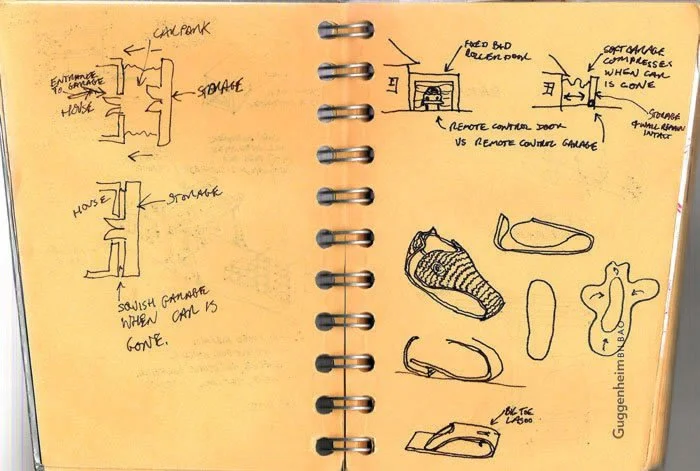 CARPARK
ENTRANCE
TO GARAGE
HOUSE
STORAGE
HOUSE
STORAGE
SQUISH GARAGE
WHEN CAR IS
GONE.
ROLLER DOOR
SOFT GARAGE
COMPRESSES
WHEN CAR
IS GONE
STORAGE
& WALL REMAIN
INTACT
REMOTE CONTROL DOOR
VS REMOTE CONTROL GARAGE
BIG TOE
LASSO
Guggenheim BILBAO